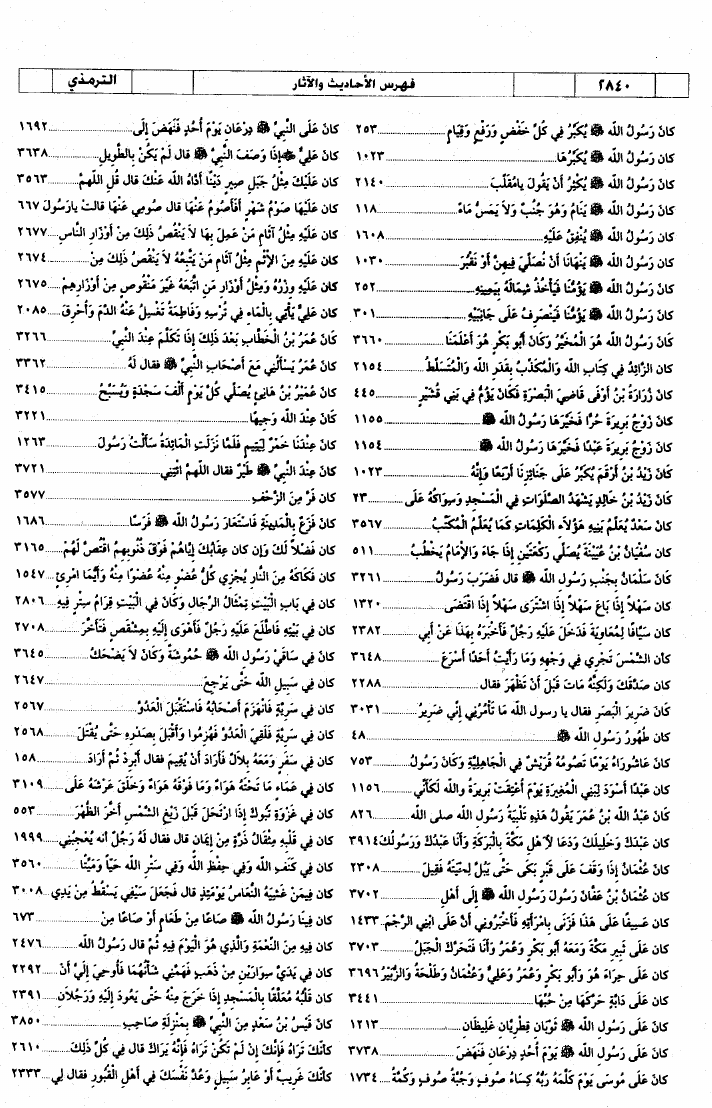 ٢٨٤٠
فهرس الأحاديث والآثار
الترمذي
كان رَسُولُ الله ﷺ يُكَبِّرُ فِي كُلِّ خَفْضٍ وَرَفْعٍ وَقِيَامٍ ٢٥٣
كان رَسُولُ الله ﷺ يُكَبِّرُهَا ١٠٢٣
كان رَسُولُ الله ﷺ يُكْثِرُ أَنْ يَقُولَ يامُقَلِّبَ ٢١٤٠
كان رَسُولُ الله ﷺ يَنَامُ وَهوَ جُنُبٌ وَلاَ يَمَسُّ مَاءً ١١٨
كان رَسُولُ الله ﷺ يُنْفِقُ عَلَيْهِ ١٦٠٨
كان رَسُولُ الله ﷺ يَنْهَانَا أَنْ نُصَلِّيَ فِيهِنَّ أَوْ نَقْبُرَ ١٠٣٠
كان رَسُولُ الله ﷺ يَؤُمُّنَا فَيَأْخُذُ شِمَالَهُ بِيَمِينِهِ ٢٥٢
كان رَسُولُ الله ﷺ يَؤُمُّنَا فَيَنْصَرِفُ عَلَى جَانِبَيْهِ ٣٠١
كان رَسُولُ الله هُوَ الْمُخَيَّرَ وَكَانَ أَبُو بَكْرٍ هُوَ أَعْلَمَنَا ٣٦٦٠
كان الزَّائِدُ فِي كِتَابِ الله وَالْمُكَذِّبُ بِقَدَرِ الله وَالْمُتَسَلِّطُ ٢١٥٤
كان زُرَارَةُ بْنُ أَوْفَى قَاضِيَ الْبَصْرَةِ فَكَانَ يَؤُمُّ فِي بَنِي قُشَيْرٍ ٤٤٥
كان زَوْجُ بَرِيرَةَ حُرًّا فَخَيَّرَهَا رَسُولُ الله ﷺ ١١٥٥
كان زَوْجُ بَرِيرَةَ عَبْدًا فَخَيَّرَهَا رَسُولُ الله ﷺ ١١٥٤
كَانَ زَيْدُ بْنُ أَرْقَمَ يُكَبِّرُ عَلَى جَنَائِزِنَا أَرْبَعًا وَإِنَّهُ ١٠٢٣
كَانَ زَيْدُ بْنُ خَالِدٍ يَشْهَدُ الصَّلَوَاتِ فِي الْمَسْجِدِ وَسِوَاكُهُ عَلَى ٢٣
كان سَعْدٌ يُعَلِّمُ بَنِيهِ هَؤُلاَءِ الْكَلِمَاتِ كَمَا يُعَلِّمُ الْمُكْتِبُ ٣٥٦٧
كان سُفْيَانُ بْنُ عُيَيْنَةَ يُصَلِّي رَكْعَتَيْنِ إِذَا جَاءَ وَالإِمَامُ يَخْطُبُ ٥١١
كَانَ سَلْمَانُ بِجَنْبِ رَسُولِ الله ﷺ قال فَضَرَبَ رَسُولُ ٣٢٦١
كان سَهْلاً إِذَا بَاعَ سَهْلاً إِذَا اشْتَرَى سَهْلاً إِذَا اقْتَضَى ١٣٢٠
كان سَيَّافًا لِمُعَاوِيَةَ فَدَخَلَ عَلَيْهِ رَجُلٌ فَأَخْبَرَهُ بِهَذَا عَنْ أَبِي ٢٣٨٢
كأن الشَّمْسَ تَجْرِي فِي وَجْهِهِ وَمَا رَأَيْتُ أَحَدًا أَسْرَعَ ٣٦٤٨
كان صَدَّقَكَ وَلَكِنَّهُ مَاتَ قَبْلَ أَنْ تَظْهَرَ فقال ٢٢٨٨
كَانَ ضَرِيرَ الْبَصَرِ فقال يا رسول الله مَا تَأْمُرُنِي إِنِّي ضَرِيرٌ ٣٠٣١
كان طَهُورُ رَسُولِ الله ﷺ ٤٨
كان عَاشُورَاءُ يَوْمًا تَصُومُهُ قُرَيْشٌ فِي الْجَاهِلِيَّةِ وَكَانَ رَسُولُ ٧٥٣
كان عَبْدًا أَسْوَدَ لِبَنِي الْمُغِيرَةِ يَوْمَ أُعْتِقَتْ بَرِيرَةُ والله لَكَأَنِّي ١١٥٦
كَانَ عَبْدُ الله بْنُ عُمَرَ يَقُولُ هَذِهِ تَلْبِيَةُ رَسُولِ الله صلى الله ٨٢٦
كان عَبْدَكَ وَخَلِيلَكَ وَدَعَا لأَهْلِ مَكَّةَ بِالْبَرَكَةِ وَأَنَا عَبْدُكَ وَرَسُولُكَ ٣٩١٤
كان عُثْمَانُ إِذَا وَقَفَ عَلَى قَبْرٍ بَكَى حَتَّى يَبُلَّ لِحْيَتَهُ فَقِيلَ ٢٣٠٨
كان عُثْمَانُ بْنُ عَفَّانَ رَسُولَ رَسُولِ الله ﷺ إِلَى أَهْلِ ٣٧٠٢
كان عَسِيفًا عَلَى هَذَا فَزَنَى بِامْرَأَتِهِ فَأَخْبَرُونِي أَنَّ عَلَى ابْنِي الرَّجْمَ ١٤٣٣
كان عَلَى ثَبِيرِ مَكَّةَ وَمَعَهُ أَبُو بَكْرٍ وَعُمَرُ وَأَنَا فَتَحَرَّكَ الْجَبَلُ ٣٧٠٣
كان عَلَى حِرَاءَ هُوَ وَأَبُو بَكْرٍ وَعُمَرُ وَعَلِيٌّ وَعُثْمَانُ وَطَلْحَةُ وَالزُّبَيْرُ ٣٦٩٦
كان عَلَى دَابَّةٍ حَرَّكَهَا مِنْ حُبِّهَا ٣٤٤١
كان عَلَى رَسُولِ الله ﷺ ثَوْبَانِ قِطْرِيَّانِ غَلِيظَانِ ١٢١٣
كان عَلَى رَسُولِ الله ﷺ يَوْمَ أُحُدٍ دِرْعَانِ فَنَهَضَ ٣٧٣٨
كان عَلَى مُوسَى يَوْمَ كَلَّمَهُ رَبُّهُ كِسَاءُ صُوفٍ وَجُبَّةُ صُوفٍ وَكُمَّةُ ١٧٣٤
كان عَلَى النَّبِيِّ ﷺ دِرْعَانِ يَوْمَ أُحُدٍ فَنَهَضَ إِلَى ١٦٩٢
كان عَلِيٌّ ﷺ إِذَا وَصَفَ النَّبِيَّ ﷺ قال لَمْ يَكُنْ بِالطَّوِيلِ ٣٦٣٨
كان عَلَيْكَ مِثْلُ جَبَلِ صِيرٍ دَيْنًا أَدَّاهُ الله عَنْكَ قال قُلِ اللهمَّ ٣٥٦٣
كان عَلَيْهَا صَوْمُ شَهْرٍ أَفَأَصُومُ عَنْهَا قال صُومِي عَنْهَا قالت يارَسُولَ ٦٦٧
كان عَلَيْهِ مِثْلُ آثَامِ مَنْ عَمِلَ بِهَا لاَ يَنْقُصُ ذَلِكَ مِنْ أَوْزَارِ النَّاسِ ٢٦٧٧
كان عَلَيْهِ مِنَ الإِثْمِ مِثْلُ آثَامِ مَنْ يَتَّبِعُهُ لاَ يَنْقُصُ ذَلِكَ مِنْ ٢٦٧٤
كان عَلَيْهِ وِزْرُهُ وَمِثْلُ أَوْزَارِ مَنِ اتَّبَعَهُ غَيْرَ مَنْقُوصٍ مِنْ أَوْزَارِهِمْ ٢٦٧٥
كان عَلِيٌّ يَأْتِي بِالْمَاءِ فِي تُرْسِهِ وَفَاطِمَةُ تَغْسِلُ عَنْهُ الدَّمَ وَأُحْرِقَ ٢٠٨٥
كان عُمَرُ بْنُ الْخَطَّابِ بَعْدَ ذَلِكَ إِذَا تَكَلَّمَ عِنْدَ النَّبِيِّ ٣٢٦٦
كان عُمَرُ يَسْأَلُنِي مَعَ أَصْحَابِ النَّبِيِّ ﷺ فقال لَهُ ٣٣٦٢
كان عُمَيْرُ بْنُ هَانِئٍ يُصَلِّي كُلَّ يَوْمٍ أَلْفَ سَجْدَةٍ وَيُسَبِّحُ ٣٤١٥
كَانَ عِنْدَ الله وَجِيهًا ٣٢٢١
كان عِنْدَنَا خَمْرٌ لِيَتِيمٍ فَلَمَّا نَزَلَتِ الْمَائِدَةُ سَأَلْتُ رَسُولَ ١٢٦٣
كان عِنْدَ النَّبِيِّ ﷺ طَيْرٌ فقال اللهمَّ ائْتِنِي ٣٧٢١
كان فَرَّ مِنَ الزَّحْفِ ٣٥٧٧
كان فَزَعٌ بِالْمَدِينَةِ فَاسْتَعَارَ رَسُولُ الله ﷺ فَرَسًا ١٦٨٦
كان فَضْلاً لَكَ وَإِن كان عِقَابُكَ إِيَّاهُمْ فَوْقَ ذُنُوبِهِمُ اقْتُصَّ لَهُمْ ٣١٦٥
كان فَكَاكَهُ مِنَ النَّارِ يُجْزِي كُلُّ عُضْوٍ مِنْهُ عُضْوًا مِنْهُ وَأَيُّمَا امْرِئٍ ١٥٤٧
كان فِي بَابِ الْبَيْتِ تِمْثَالُ الرِّجَالِ وَكَانَ فِي الْبَيْتِ قِرَامُ سِتْرٍ فِيهِ ٢٨٠٦
كان فِي بَيْتِهِ فَاطَّلَعَ عَلَيْهِ رَجُلٌ فَأَهْوَى إِلَيْهِ بِمِشْقَصٍ فَتَأَخَّرَ ٢٧٠٨
كان فِي سَاقَيْ رَسُولِ الله ﷺ حُمُوشَةٌ وَكَانَ لاَ يَضْحَكُ ٣٦٤٥
كان فِي سَبِيلِ الله حَتَّى يَرْجِعَ ٢٦٤٧
كان فِي سَرِيَّةٍ فَانْهَزَمَ أَصْحَابُهُ فَاسْتَقْبَلَ الْعَدُوَّ ٢٥٦٧
كان فِي سَرِيَّةٍ فَلَقِيَ الْعَدُوَّ فَهُزِمُوا وَأَقْبَلَ بِصَدْرِهِ حَتَّى يُقْتَلَ ٢٥٦٨
كان فِي سَفَرٍ وَمَعَهُ بِلاَلٌ فَأَرَادَ أَنْ يُقِيمَ فقال أَبْرِدْ ثُمَّ أَرَادَ ١٥٨
كان فِي عَمَاءٍ مَا تَحْتَهُ هَوَاءٌ وَمَا فَوْقَهُ هَوَاءٌ وَخَلَقَ عَرْشَهُ عَلَى ٣١٠٩
كان فِي غَزْوَةِ تَبُوكَ إِذَا ارْتَحَلَ قَبْلَ زَيْغِ الشَّمْسِ أَخَّرَ الظُّهْرَ ٥٥٣
كان فِي قَلْبِهِ مِثْقَالُ ذَرَّةٍ مِنْ إِيمَانٍ قال فقال لَهُ رَجُلٌ أنه يُعْجِبُنِي ١٩٩٩
كان فِي كَنَفِ الله وَفِي حِفْظِ الله وَفِي سَتْرِ الله حَيًّا وَمَيِّتًا ٣٥٦٠
كان فِيمَنْ غَشِيَهُ النُّعَاسُ يَوْمَئِذٍ قال فَجَعَلَ سَيْفِي يَسْقُطُ مِنْ يَدِي ٣٠٠٨
كان فِينَا رَسُولُ الله ﷺ صَاعًا مِنْ طَعَامٍ أَوْ صَاعًا مِنْ ٦٧٣
كان فِيهِ مِنَ النِّعْمَةِ وَالَّذِي هُوَ الْيَوْمَ فِيهِ ثُمَّ قال رَسُولُ الله ٢٤٧٦
كان فِي يَدَيَّ سِوَارَيْنِ مِنْ ذَهَبٍ فَهَمَّنِي شَأْنُهُمَا فَأُوحِيَ إِلَيَّ أَنْ ٢٢٩٢
كان قَلْبُهُ مُعَلَّقًا بِالْمَسْجِدِ إِذَا خَرَجَ مِنْهُ حَتَّى يَعُودَ إِلَيْهِ وَرَجُلاَنِ ٢٣٩١
كان قَيْسُ بْنُ سَعْدٍ مِنَ النَّبِيِّ ﷺ بِمَنْزِلَةِ صَاحِبِ ٣٨٥٠
كأنك تَرَاهُ فَإِنَّكَ إِنْ لَمْ تَكُنْ تَرَاهُ فَإِنَّهُ يَرَاكَ قال فِي كُلِّ ذَلِكَ ٢٦١٠
كأنك غَرِيبٌ أَوْ عَابِرُ سَبِيلٍ وَعُدَّ نَفْسَكَ فِي أَهْلِ الْقُبُورِ فقال لِي ٢٣٣٣